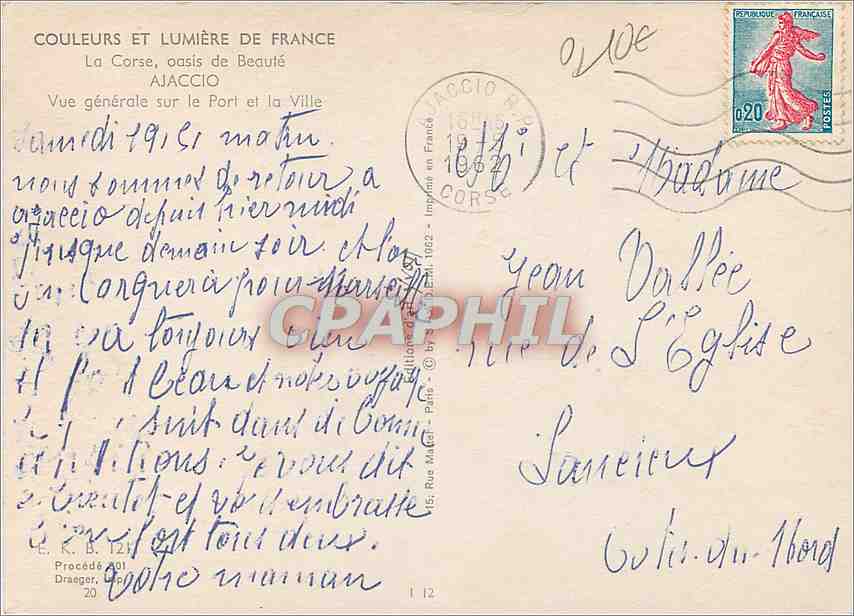 COULEURS ET LUMIÈRE DE FRANCE
La Corse, oasis de Beauté
AJACCIO
Vue générale sur le Port et la Ville
Samedi 19/5/ matin.
nous sommes de retour a
ajaccio depuis hier midi
jusque demain soir. et l'on
larguera pour Marseille
va toujours bien
il fait beau et notre voyage
suit dans de bonne
conditions. je vous dit
a bientot et vs embrasse
bien fort tous deux.
votre maman
E. K. B. 121
Procédé 301
Draeger, Imp.
20
1 12
Editions d'art
15, Rue Martel - Paris - © by S.P.A.D.E.M. 1962 - Imprimé en France
0210€
AJACCIO R.P.
19-5
1962
CORSE
REPUBLIQUE FRANÇAISE
0,20
POSTES
et Madame
Jean Vallée
rue de L'Eglise
Lancieux
Cotes-du-Nord
CPAPHIL